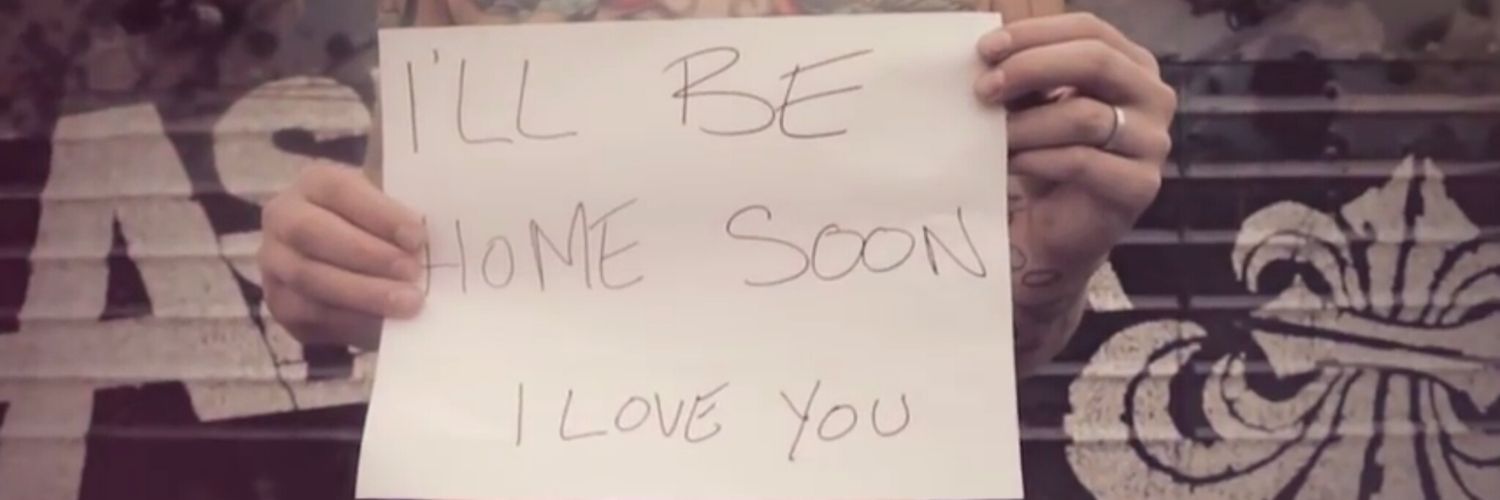 I'LL BE
HOME SOON
I LOVE YOU
AS